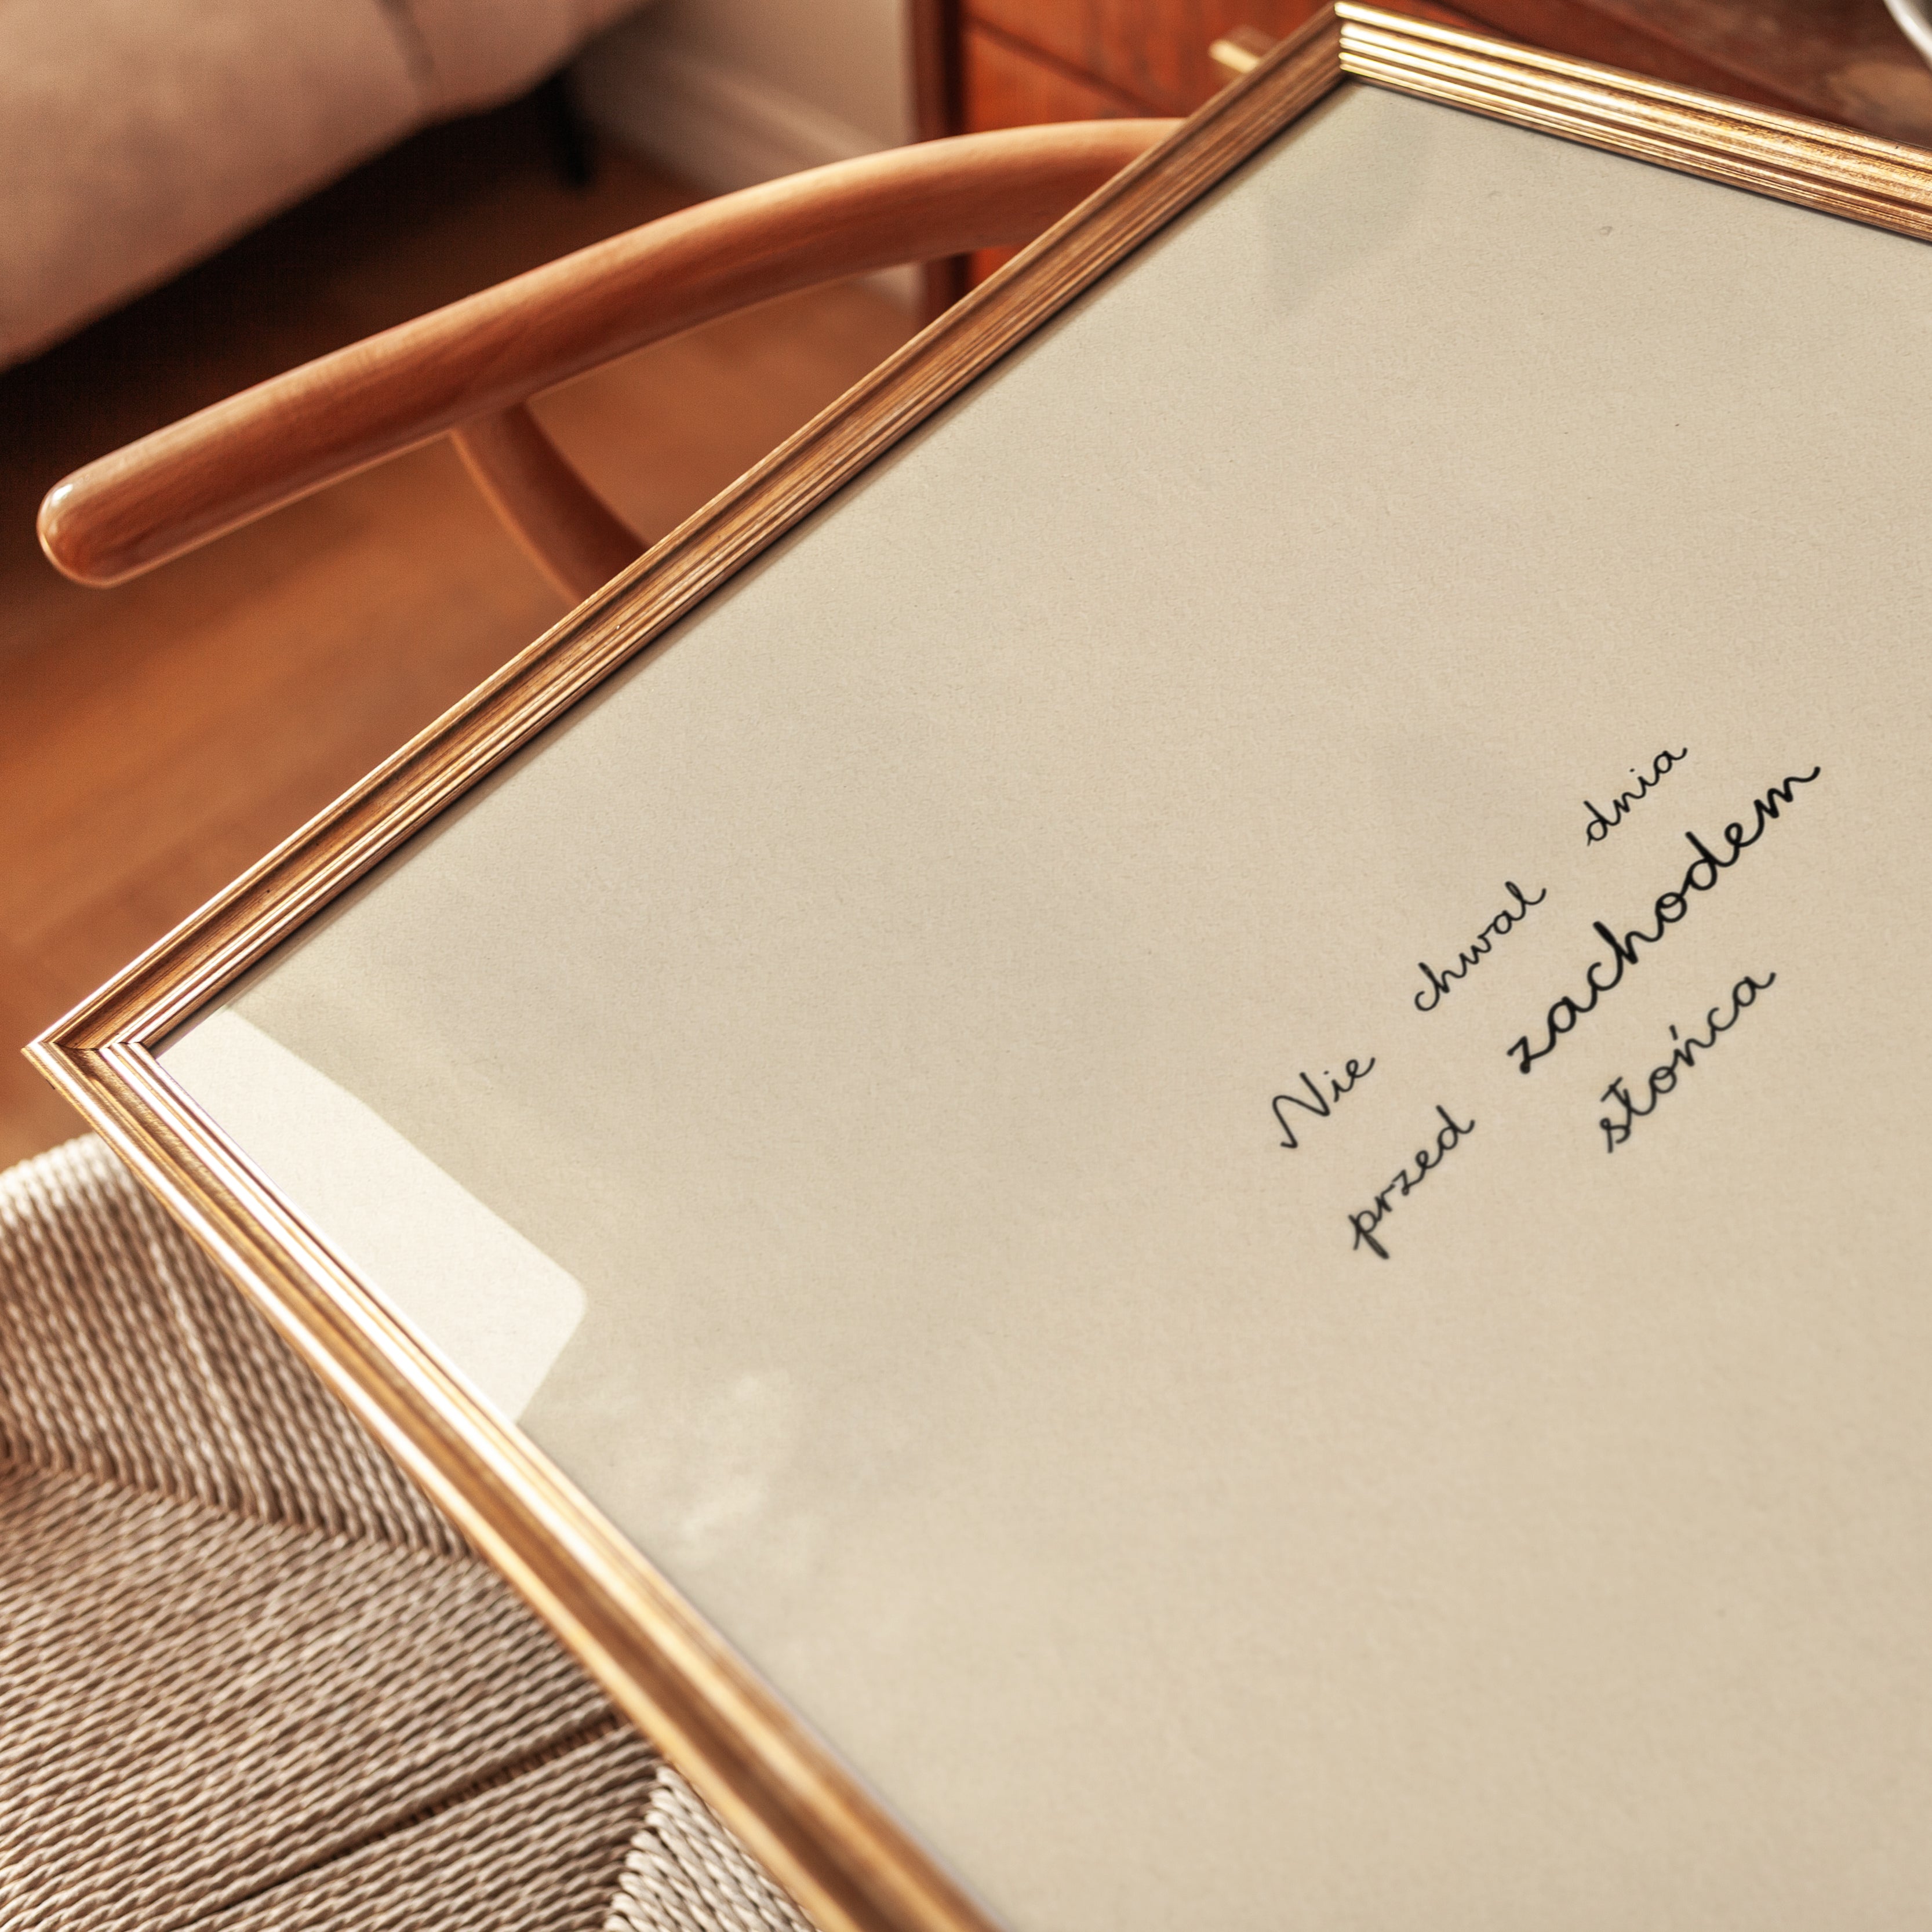 Nie chwal dnia
przed zachodem
słońca